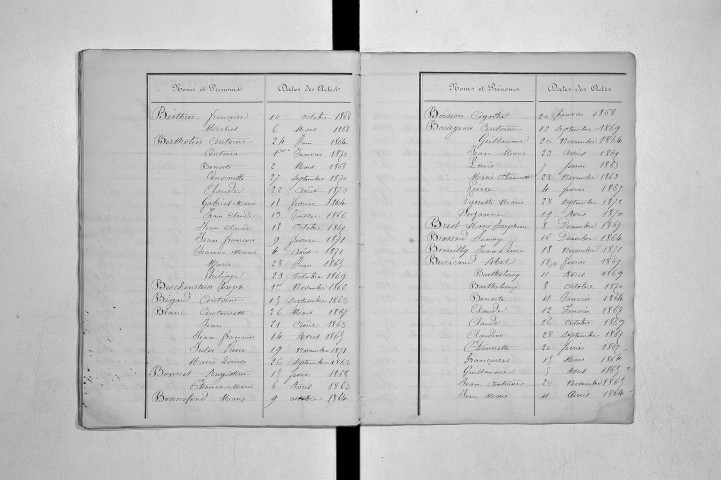 Noms et Prénoms Dates des Actes
Berthier françoise 10 octobre 1868
Michel 6 Mars 1868
Bertholon Antoine 24 Juin 1864
Antoine Janvier 1870
Benoite 2 Mars 1868
Antoinette 27 Septembre 1870
Claude 22 Août 1873
Gabriel Marie 11 février 1864
Jean Claude 13 1866
Jean Claude 18 Octobre 1869
Jean françois 9 février 1871
Jeanne Marie 4 Août 1871
Marie 28 Juin 1865
Philippe 23 Octobre 1869
Novembre 1866
Bégard Antoine 15 Septembre 1863
Blanc Antoinette 26 Mars 1869
Jean 21 Août 1863
Jean françois 14 Avril 1865
Jules Pierre 19 Novembre 1871
Maria Louise 26 Septembre 1862
Bonnet Augustine 15 février 1868
Etienne Marie 6 Avril 1863
Bonnefond Marie 9 octobre 1864
Noms et Prénoms Dates des Actes
Boisson Agathe 20 Janvier 1868
Bourgeois Antoine 12 Septembre 1869
Guillaume 20 Novembre 1864
Jean Marie 23 Avril 1869
Louis 7 février 1863
Marie 28 Novembre 1863
Pierre 4 février 1867
Pierrette Marie 28 Septembre 1872
Suzanne 19 Avril 1870
Brest Marie Joséphine 8 Décembre 1867
Brossard Fanny 16 Décembre 1864
Brouilly Jean Pierre 18 Novembre 1871
Burricand Abel 18 Janvier 1869
Barthélemy 11 Avril 1869
Barthélemy 8 Octobre 1870
Benoite 11 Janvier 1864
Claude 12 février 1867
Claude 26 Octobre 1867
Claudine 28 Septembre 1867
Etiennette 20 février 1867
Françoise 15 Mars 1864
Guillaume 5 Avril 1865
Jean Antoine 24 Novembre 1865
Jean Marie 11 Avril 1864